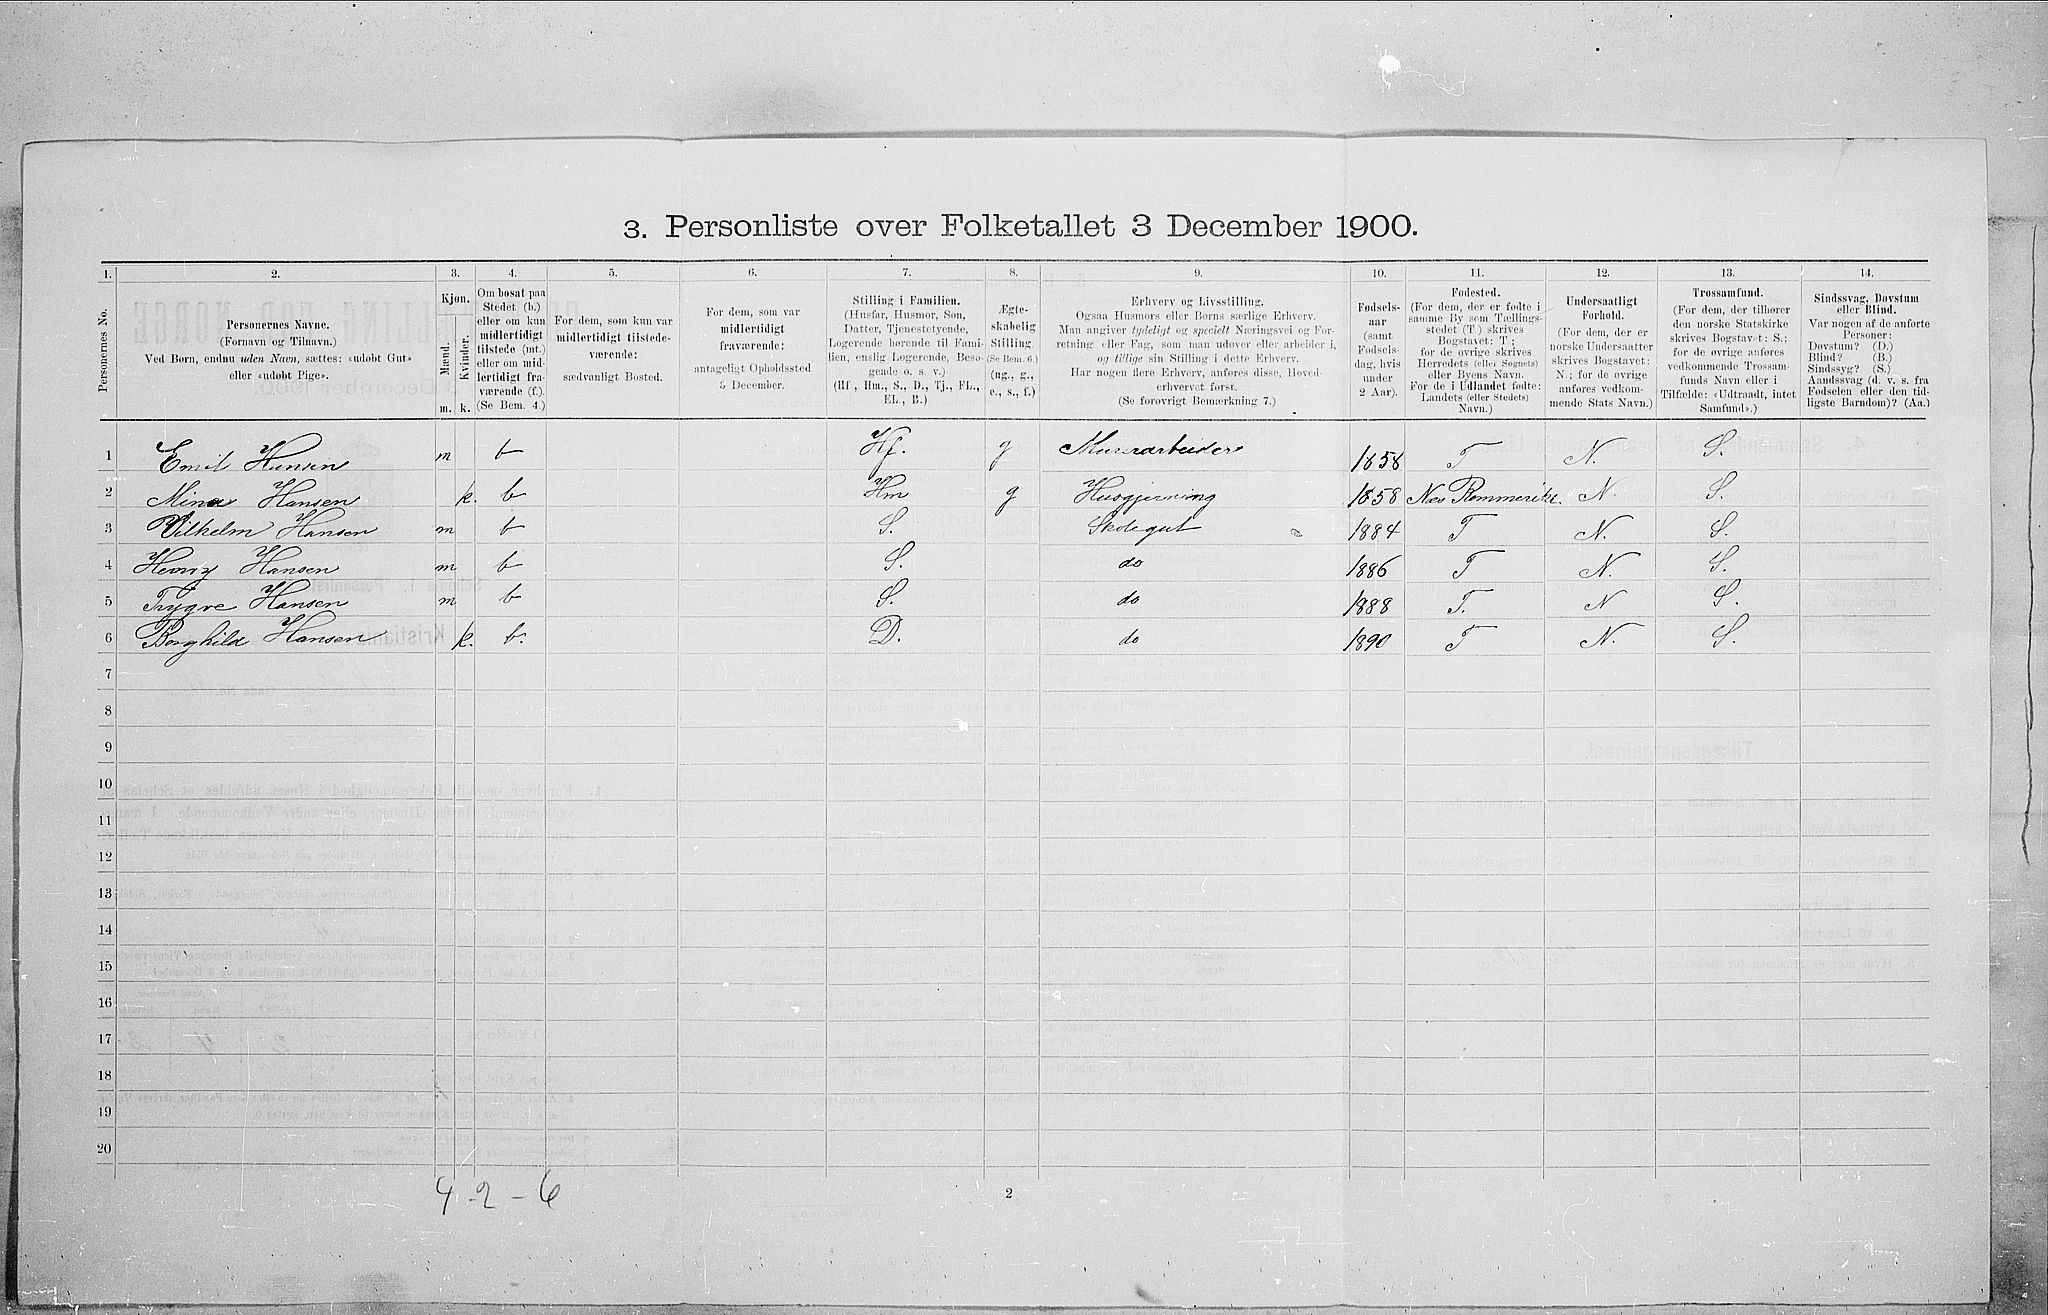 3. Personliste over Folketallet 3 December 1900.
1. 2. 3. 4. 5. 6. 7. 8. 9. 10. 11. 12. 13. 14.
Personernes No.
Personernes Navne.
(Fornavn og Tilnavn.)
Ved Børn, endnu uden Navn, sættes: «udøbt Gut»
eller «udøbt Pige».
Kjøn.
Mænd.
Kvinder.
m. k.
Om bosat paa
Stedet (b.)
eller om kun
midlertidigt
tilstede (mt.)
eller om mid-
lertidigt fra-
værende (f.)
(Se Bem. 4.)
For dem, som kun var
midlertidigt tilstede-
værende:
sædvanligt Bosted.
For dem, som var
midlertidigt
fraværende:
antageligt Opholdssted
5 December.
Stilling i Familien.
(Husfar, Husmor, Søn,
Datter, Tjenestetyende,
Logerende hørende til Fami-
lien, enslig Logerende, Besø-
gende o. s. v.)
(Hf., Hm., S., D., Tj., FL.,
EL., B.)
Ægte-
skabelig
Stilling.
(Se Bem. 6.)
(ug., g.,
e., s., f.)
Erhverv og Livsstilling.
Ogsaa Husmors eller Børns særlige Erhverv.
Man angiver tydeligt og specielt Næringsvei og For-
retning eller Fag, som man udøver eller arbeider i,
og tillige sin Stilling i dette Erhverv.
Har nogen flere Erhverv, anføres disse, Hoved-
erhvervet først.
(Se forøvrigt Bemærkning 7.)
Fødsels-
aar
(samt
Fødsels-
dag, hvis
under
2 Aar).
Fødested.
(For dem, der er fødte i
samme By som Tællings-
stedet (T.) skrives
Bogstavet: T;
for de øvrige skrives
Herredets (eller Sognets)
eller Byens Navn.
For de i Udlandet fødte:
Landets (eller Stedets)
Navn.)
Undersaatligt
Forhold.
(For dem, der er
norske Undersaatter
skrives Bogstavet:
N.; for de øvrige
anføres vedkom-
mende Stats Navn.)
Trossamfund.
(For dem, der tilhører
den norske Statskirke
skrives Bogstavet: S.;
for de øvrige anføres
vedkommende Trossam-
funds Navn eller i
Tilfælde: «Udtraadt, intet
Samfund».)
Sindssvag, Døvstum
eller Blind.
Var nogen af de anførte
Personer:
Døvstum? (D.)
Blind? (B.)
Sindssyg? (S.)
Aandssvag (d. v. s. fra
Fødselen eller den tid-
ligste Barndom)? (Aa.)
1 Emil Hansen m b Hf. g Murerarbeider 1858 T N. S.
2 Mina Hansen k. b Hm g Husgjerning 1858 Næs Rommerike. N. S.
3 Vilhelm Hansen m b S. Skolegut 1884 T N. S.
4 Henry Hansen m b S. do 1886 T N. S.
5 Trygve Hansen m b S. do 1888 T. N S.
6 Borghild Hansen k. b. D. do 1890 T N. S.
7
8
9
10
11
12
13
14
15
16
17
18
19
20
4 - 2 - 6
2